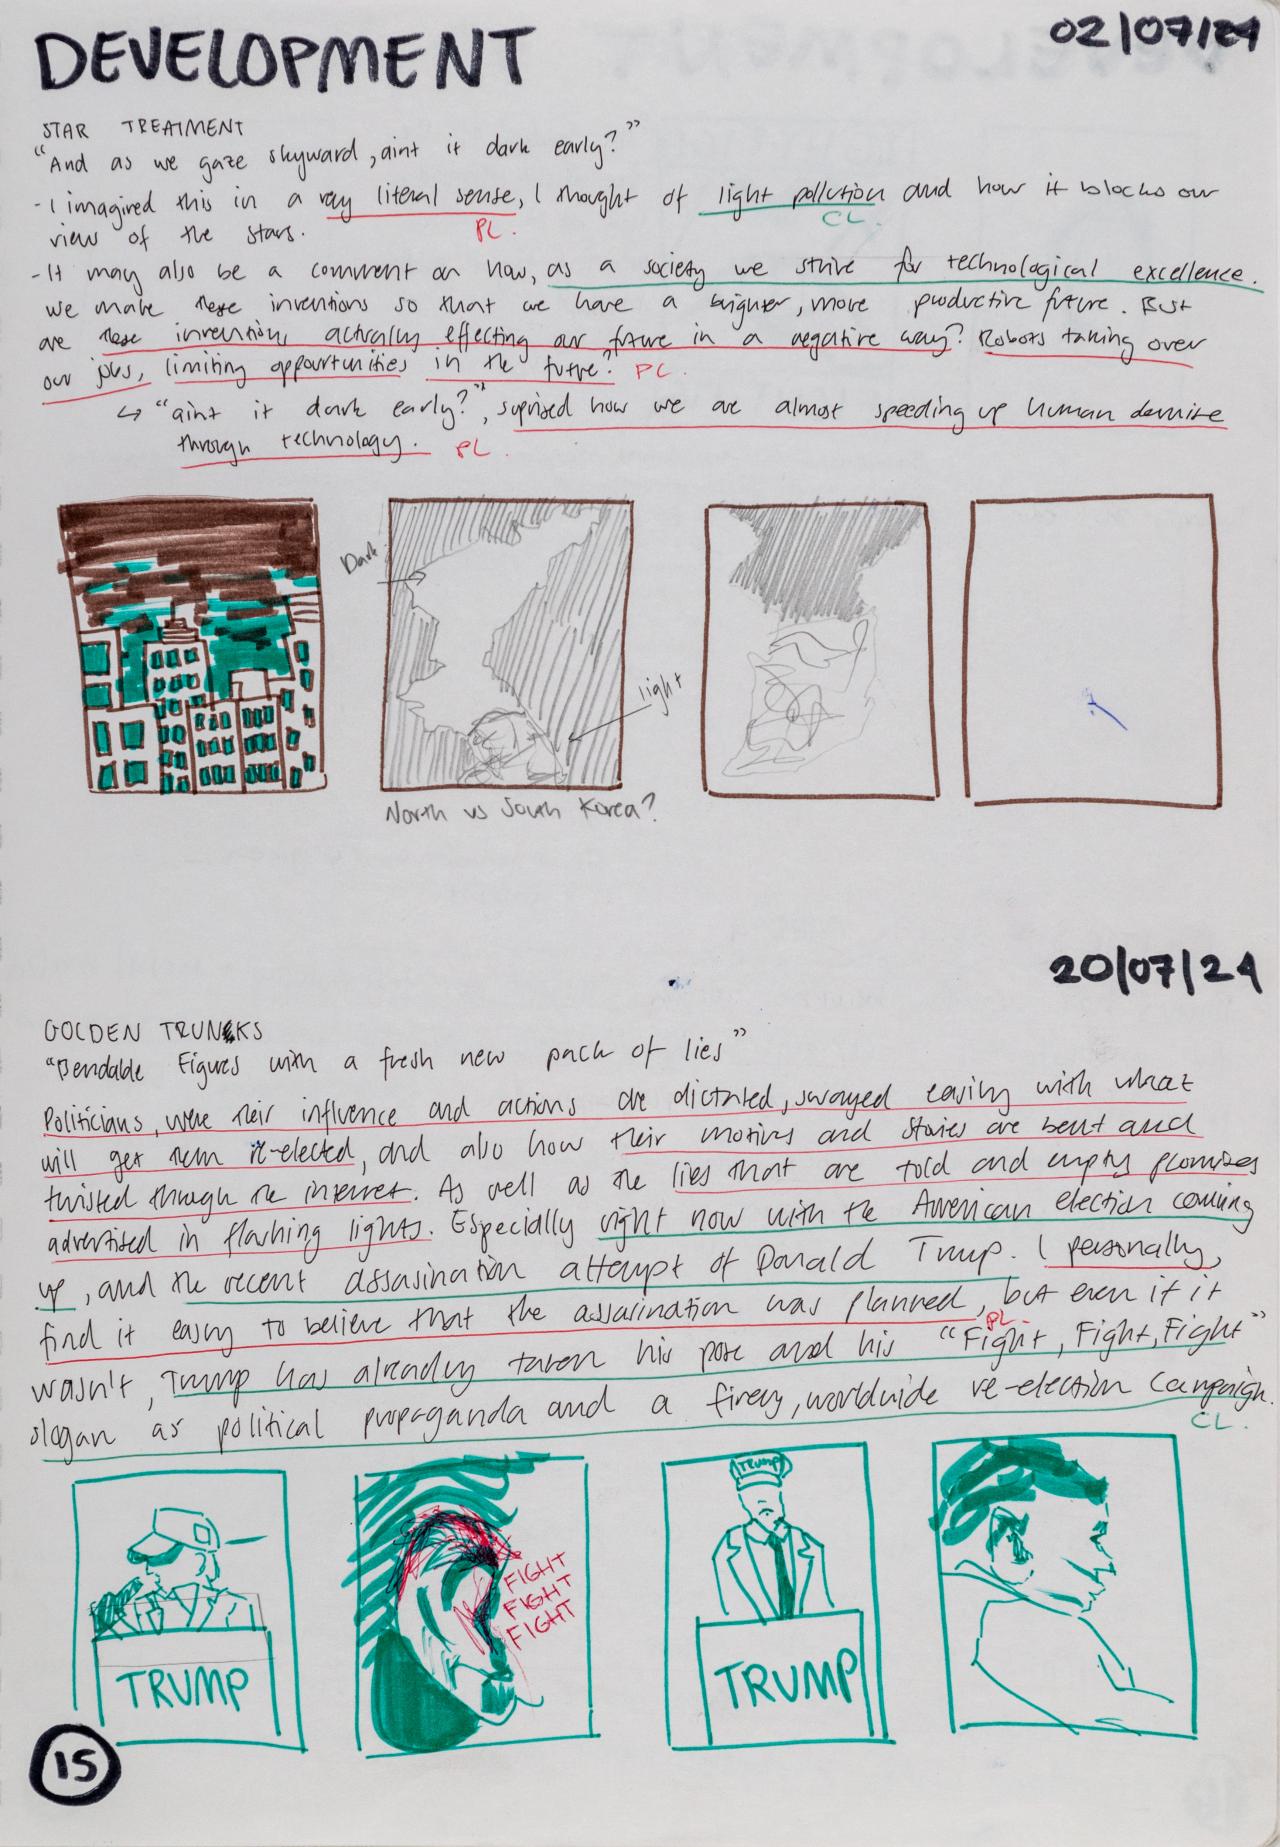 DEVELOPMENT
02/07/24
STAR TREATMENT
"And as we gaze skyward, aint it dark early?"
- I imagined this in a very literal sense, I thought of light pollution and how it blocks our
PL.
CL.
view of the stars.
- It may also be a comment on how, as a society we strive for technological excellence.
we make these inventions so that we have a brighter, more productive future. But
are these inventions actually effecting our future in a negative way? Robots taking over
our jobs, limiting oppourtunities in the future? PL.
↳ "aint it dark early?", suprised how we are almost speeding up human demise
through technology. PL.
Dark
light
North vs South Korea?
20/07/24
GOLDEN TRUNKS
"Bendable Figures with a fresh new pack of lies"
Politicians, were their influence and actions are dictated, swayed easily with what
will get them re-elected, and also how their motives and stories are bent and
twisted through the internet. As well as the lies that are told and empty promises
advertised in flashing lights. Especially right now with the American election coming
up, and the recent assasination attempt of Donald Trump. I personally,
find it easy to believe that the assasination was planned, but even if it
PL.
wasn't, Trump has already taken his pose and his "Fight, Fight, Fight"
slogan as political propaganda and a firery, worldwide re-election campaign.
CL.
TRUMP
FIGHT
FIGHT
FIGHT
TRUMP
TRUMP
15